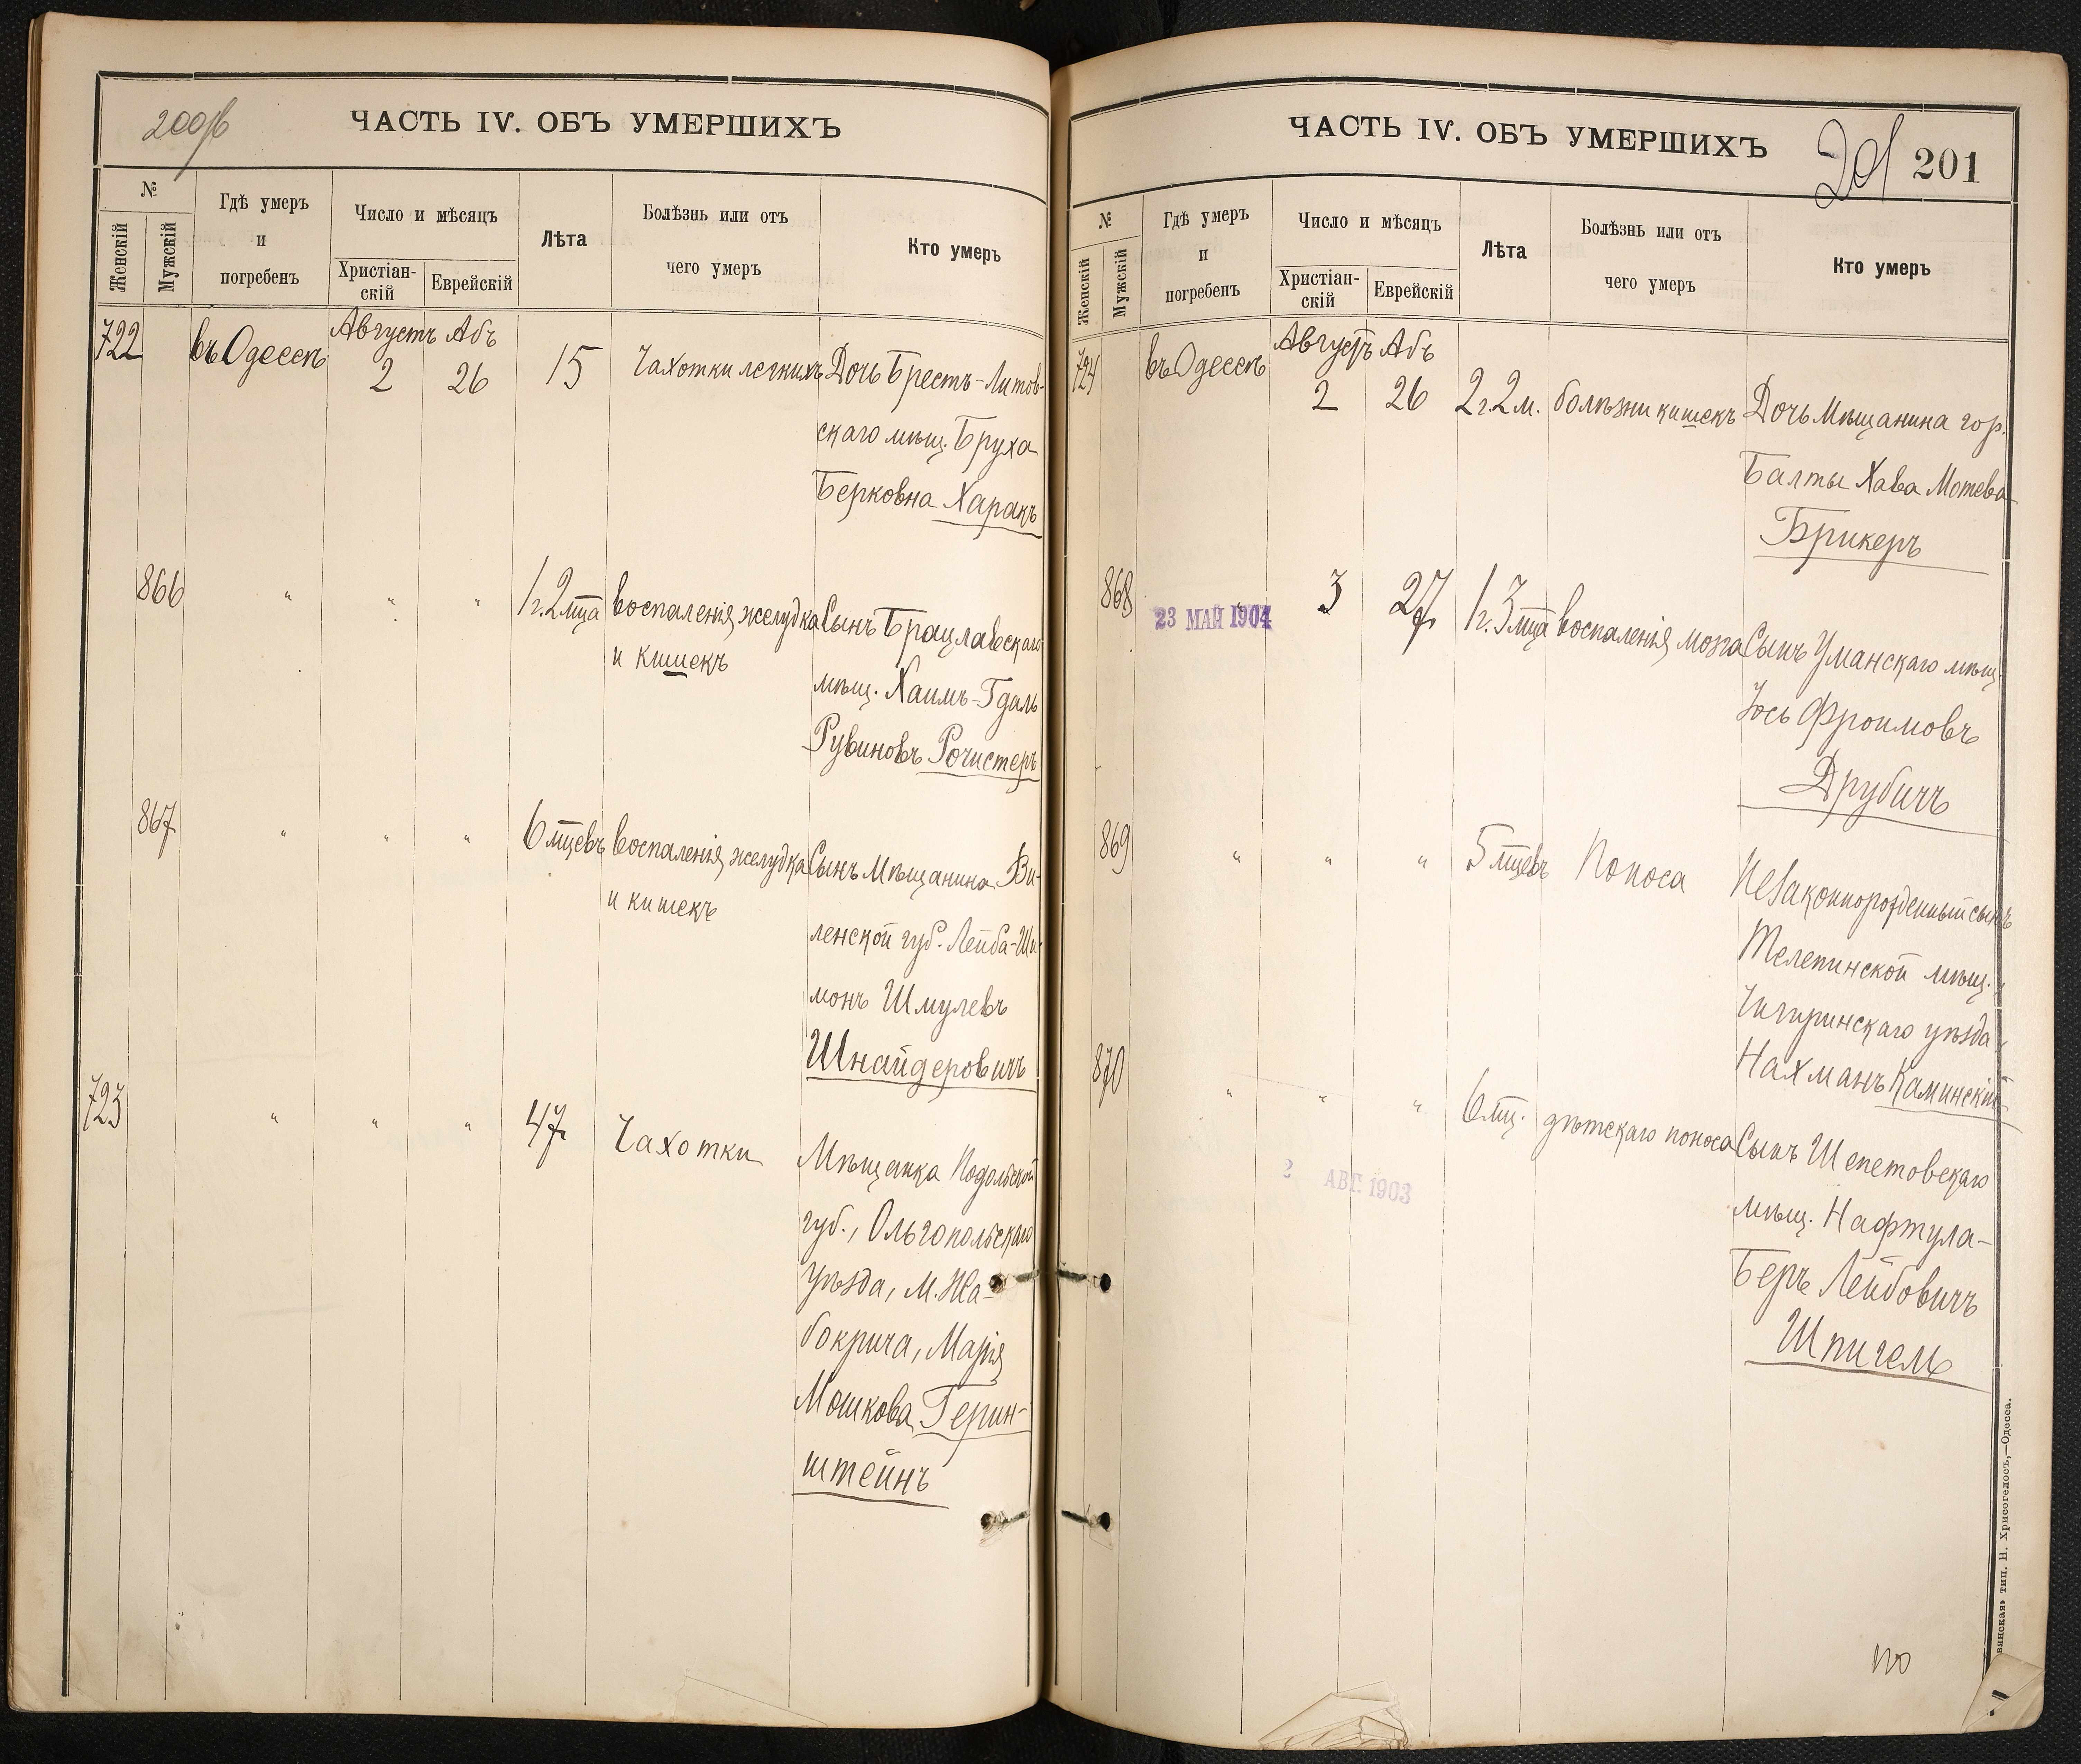 200об
ЧАСТЬ IV. ОБЪ УМЕРШИХЪ
№
Женскій
Мужскій
Гдѣ умеръ
и
погребенъ
Число и мѣсяцъ
Христіан-
скій
Еврейскій
Лѣта
Болѣзнь или отъ
чего умеръ
Кто умеръ
722
въ Одессѣ
Августъ Абъ
2 26
15
Чахотки легкихъ
Дочь Брестъ-Литов-
скаго мѣщ. Бруха
Берковна Харакъ
866
" " "
1 г. 2 мца
воспаленія желудка
и кишекъ
Сынъ Брацлавскаго
мѣщ. Хаимъ-Гдаль
Рувиновъ Рочистеръ
867
" " "
6 мцевъ
воспаленія желудка
и кишекъ
Сынъ Мѣщанина Ви-
ленской губ. Лейба-Ши-
монъ Шмулевъ
Шнайдеровичъ
723
" " "
47
Чахотки
Мѣщанка Подольской
губ., Ольгопольскаго
уѣзда, М. Жа-
бокрича, Марія
Мошкова Герин-
штейнъ
ЧАСТЬ IV. ОБЪ УМЕРШИХЪ
201
201
№
Женскій
Мужскій
Гдѣ умеръ
и
погребенъ
Число и мѣсяцъ
Христіан-
скій
Еврейскій
Лѣта
Болѣзнь или отъ
чего умеръ
Кто умеръ
724
въ Одессѣ
Августъ Абъ
2 26
2 г. 2 м.
болѣзни кишекъ
Дочь Мѣщанина гор.
Балты Хава Мотева
Брикеръ
868
"
23 МАЙ 1904
3 27
1 г. 3 мца
воспаленія мозга
Сынъ Уманскаго мѣщ.
Іось Фроимовъ
Друбичъ
869
" " "
5 мцевъ
Поноса
Незаконнорожденный сынъ
Телепинской мѣщ.,
Чигиринскаго уѣзда,
Нахманъ Каминскій
870
" " "
6 мц.
дѣтскаго поноса
Сынъ Шепетовскаго
мѣщ. Нафтула-
Беръ Лейбовичъ
Шпигель
2 АВГ. 1903
вянская» тип. Н. Хрисогелосъ,—Одесса.